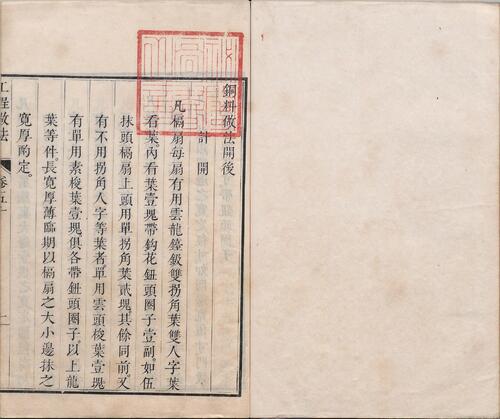 銅料做法開後
計開
凡槅扇每扇有用雲龍鐘鈒雙拐角葉雙人字葉
看葉內看葉壹塊帶鈎花鈕頭圈子壹副如伍
抹頭槅扇上頭用單拐角葉貳塊其餘同前又
有不用拐角人字等葉者單用雲頭梭葉壹塊
有單用素梭葉壹塊俱各帶鈕頭圈子以上龍
葉等件長寬厚薄臨期以槅扇之大小邊抹之
寬厚酌定
工程做法
卷五十
一